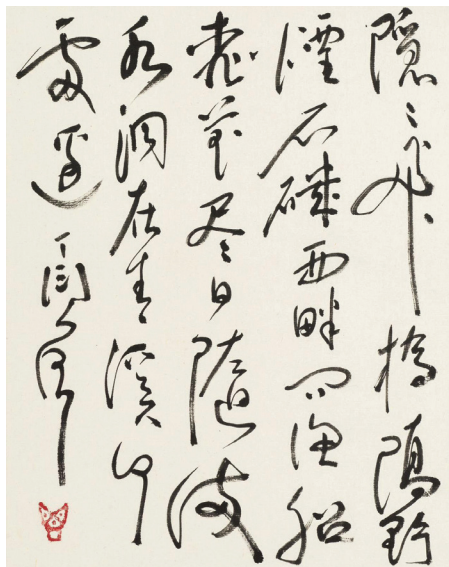 隱〻飛橋隔野
煙石磯西畔问渔船
桃花尽日随流
水洞在清溪何
處邊